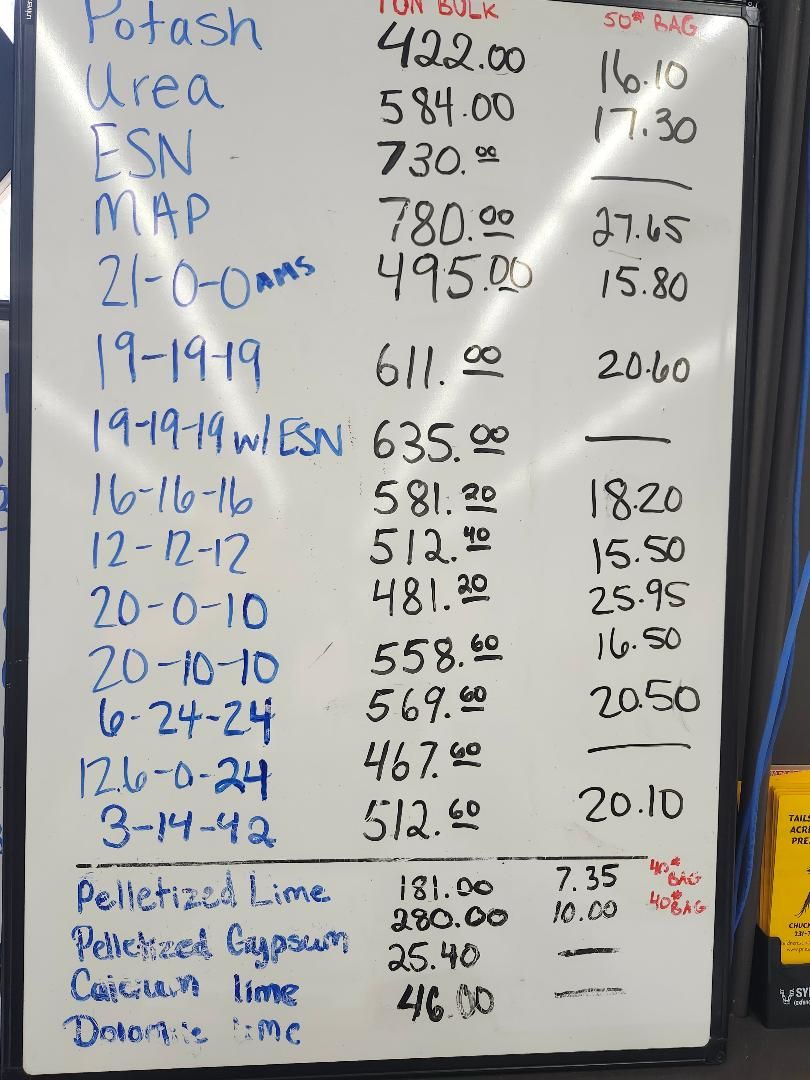 TON BULK 50# BAG
Potash 422.00 16.10
Urea 584.00 17.30
ESN 730.00 —
MAP 780.00 27.65
21-0-0 AMS 495.00 15.80
19-19-19 611.00 20.60
19-19-19 w/ ESN 635.00 —
16-16-16 581.20 18.20
12-12-12 512.40 15.50
20-0-10 481.20 25.95
20-10-10 558.60 16.50
6-24-24 569.60 20.50
12.6-0-24 467.60 —
3-14-42 512.60 20.10
Pelletized Lime 181.00 7.35 40# BAG
Pelletized Gypsum 280.00 10.00 40# BAG
Calcium lime 25.40 —
Dolomitic lime 46.00 —
TAILS
ACRE
PRE
CHUCK
SY